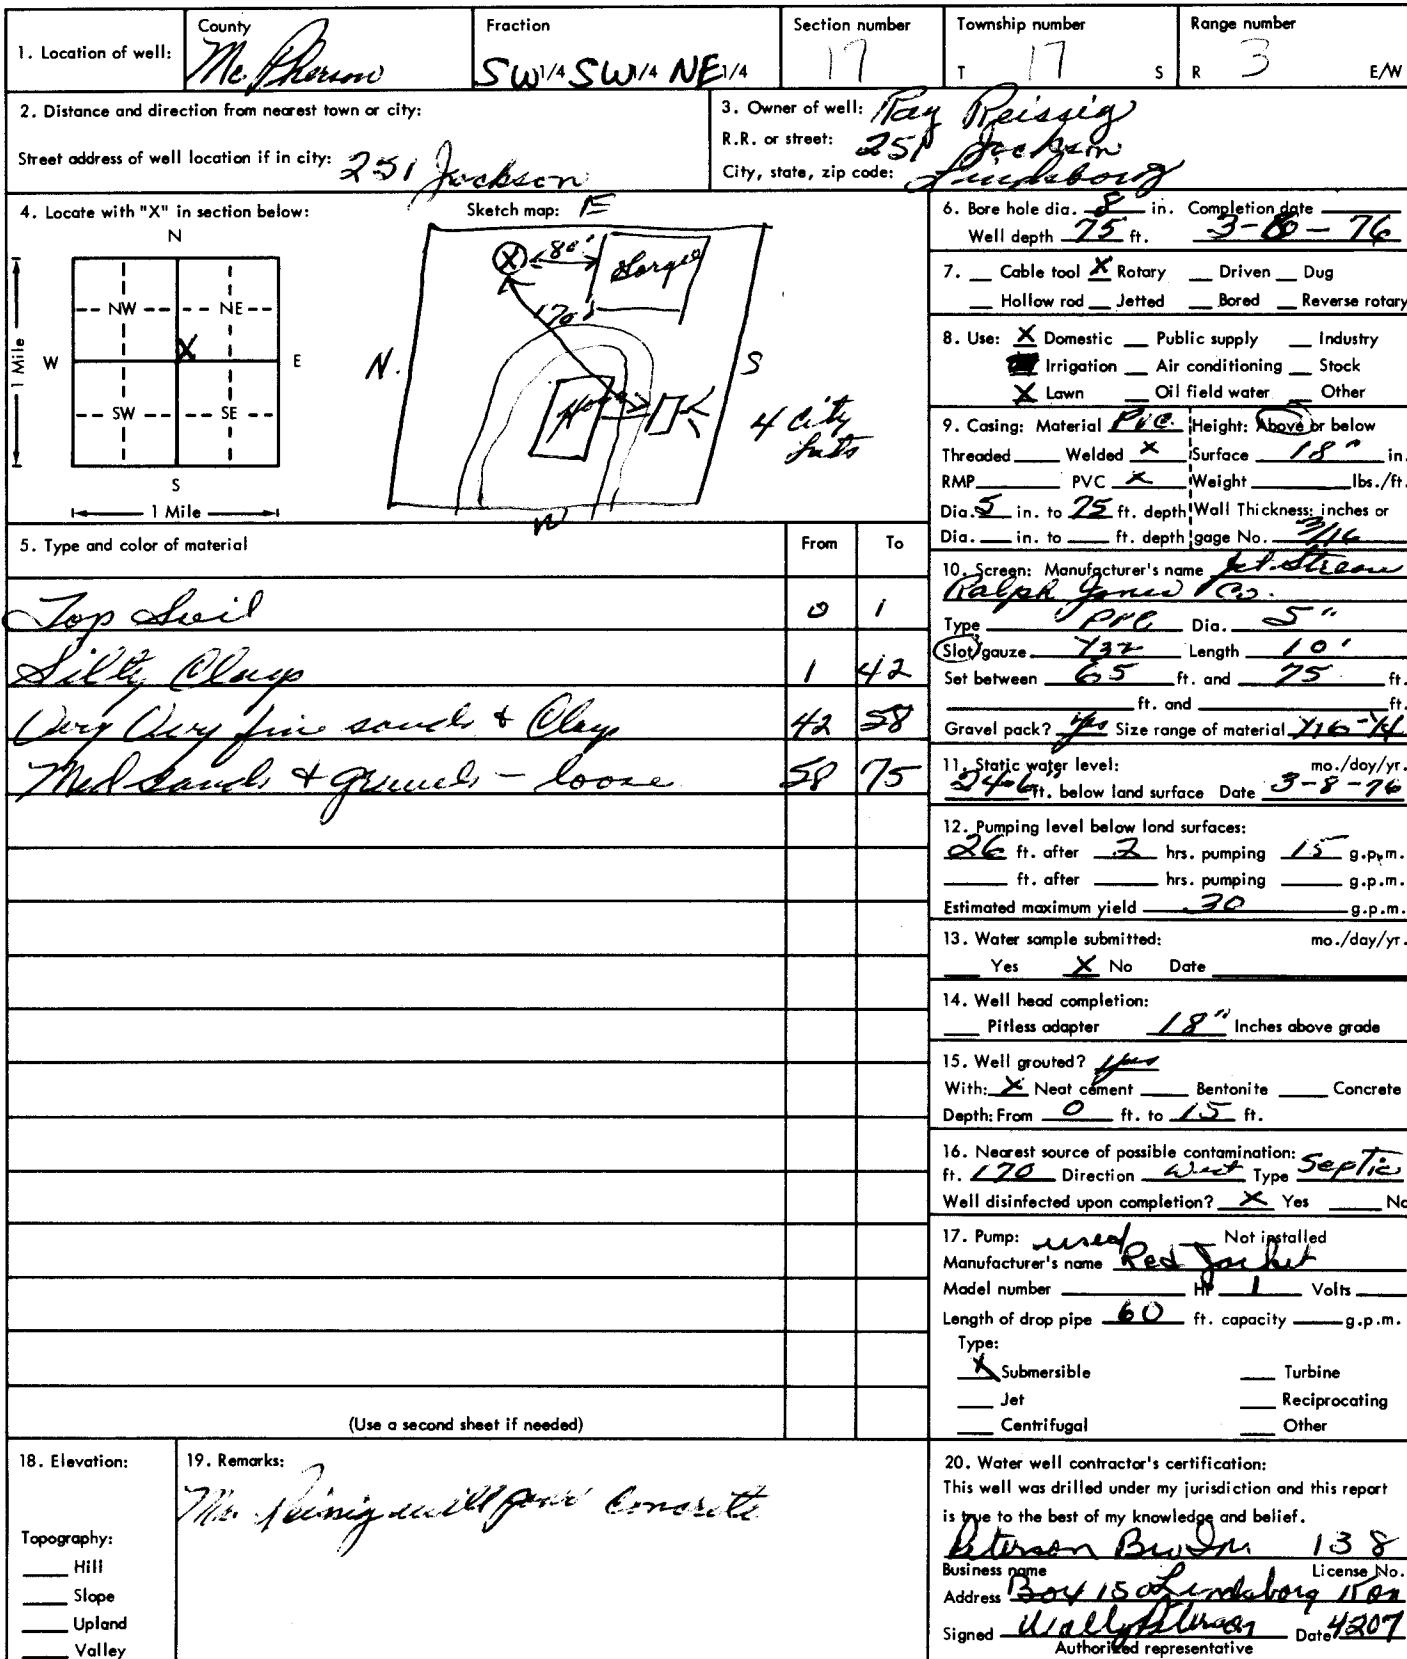 1. Location of well:
County
Mc Pherson
Fraction
SW 1/4 SW 1/4 NE 1/4
Section number
17
Township number
T 17 S
Range number
R 3 E/W
2. Distance and direction from nearest town or city:
Street address of well location if in city: 251 Jackson
3. Owner of well: Ray Reissig
R.R. or street: 251 Jackson
City, state, zip code: Lindsborg
4. Locate with "X" in section below:
N
NW NE
W X E
SW SE
S
1 Mile
1 Mile
Sketch map: E
X 80'
170'
N. S
House
4 City
lots
W
5. Type and color of material From To
Top Soil 0 1
Silty Clays 1 42
Very Very fine sands & Clays 42 58
Med sands & gravels - loose 58 75
(Use a second sheet if needed)
6. Bore hole dia. 8 in. Completion date
Well depth 75 ft. 3- - 76
7. Cable tool X Rotary Driven Dug
Hollow rod Jetted Bored Reverse rotary
8. Use: X Domestic Public supply Industry
Irrigation Air conditioning Stock
X Lawn Oil field water Other
9. Casing: Material PVC. Height: Above or below
Threaded Welded X Surface 18" in.
RMP PVC X Weight lbs./ft.
Dia. 5 in. to 75 ft. depth Wall Thickness: inches or
Dia. in. to ft. depth gage No. 3/16
10. Screen: Manufacturer's name Jet Stream
Ralph Jones Co.
Type PVC Dia. 5"
Slot/gauze 1/32 Length 10'
Set between 65 ft. and 75 ft.
ft. and ft.
Gravel pack? yes Size range of material 1/16-1/4
11. Static water level: mo./day/yr.
24-6" ft. below land surface Date 3-8-76
12. Pumping level below land surfaces:
26 ft. after 2 hrs. pumping 15 g.p.m.
ft. after hrs. pumping g.p.m.
Estimated maximum yield 30 g.p.m.
13. Water sample submitted: mo./day/yr.
Yes X No Date
14. Well head completion:
Pitless adapter 18" Inches above grade
15. Well grouted? yes
With: X Neat cement Bentonite Concrete
Depth: From 0 ft. to 15 ft.
16. Nearest source of possible contamination:
ft. 170 Direction West Type Septic
Well disinfected upon completion? X Yes No
17. Pump: used Not installed
Manufacturer's name Red Jacket
Model number HP 1 Volts
Length of drop pipe 60 ft. capacity g.p.m.
Type:
X Submersible Turbine
Jet Reciprocating
Centrifugal Other
18. Elevation:
Topography:
Hill
Slope
Upland
Valley
19. Remarks:
Mr. Reissig will pour Concrete
20. Water well contractor's certification:
This well was drilled under my jurisdiction and this report
is true to the best of my knowledge and belief.
Peterson Bro Inc 138
Business name License No.
Address Box 150 Lindsborg Kan
Signed Wally Peterson Date 4207
Authorized representative